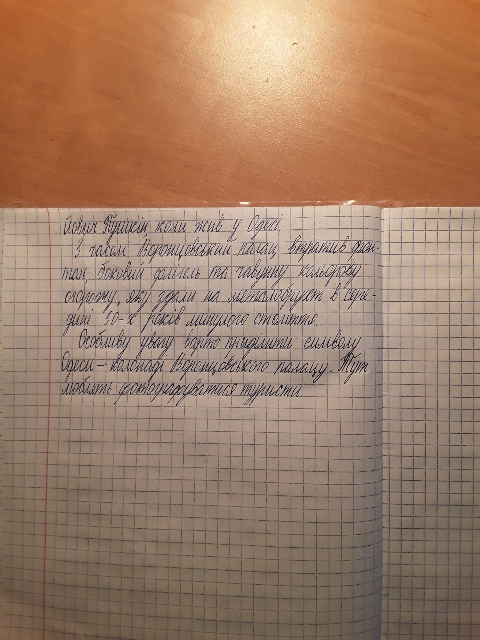 йович Пушкін коли жив у Одесі.
З часом Воронцовський палац втратив фон-
тан, боковий флігель та чавунну кольорову
огорожу, яку здали на металобрухт в сере-
дині 30-х років минулого століття.
Особливу увагу варто приділити символу
Одеси – колонаді Воронцовського палацу. Тут
люблять фотографуватися туристи.